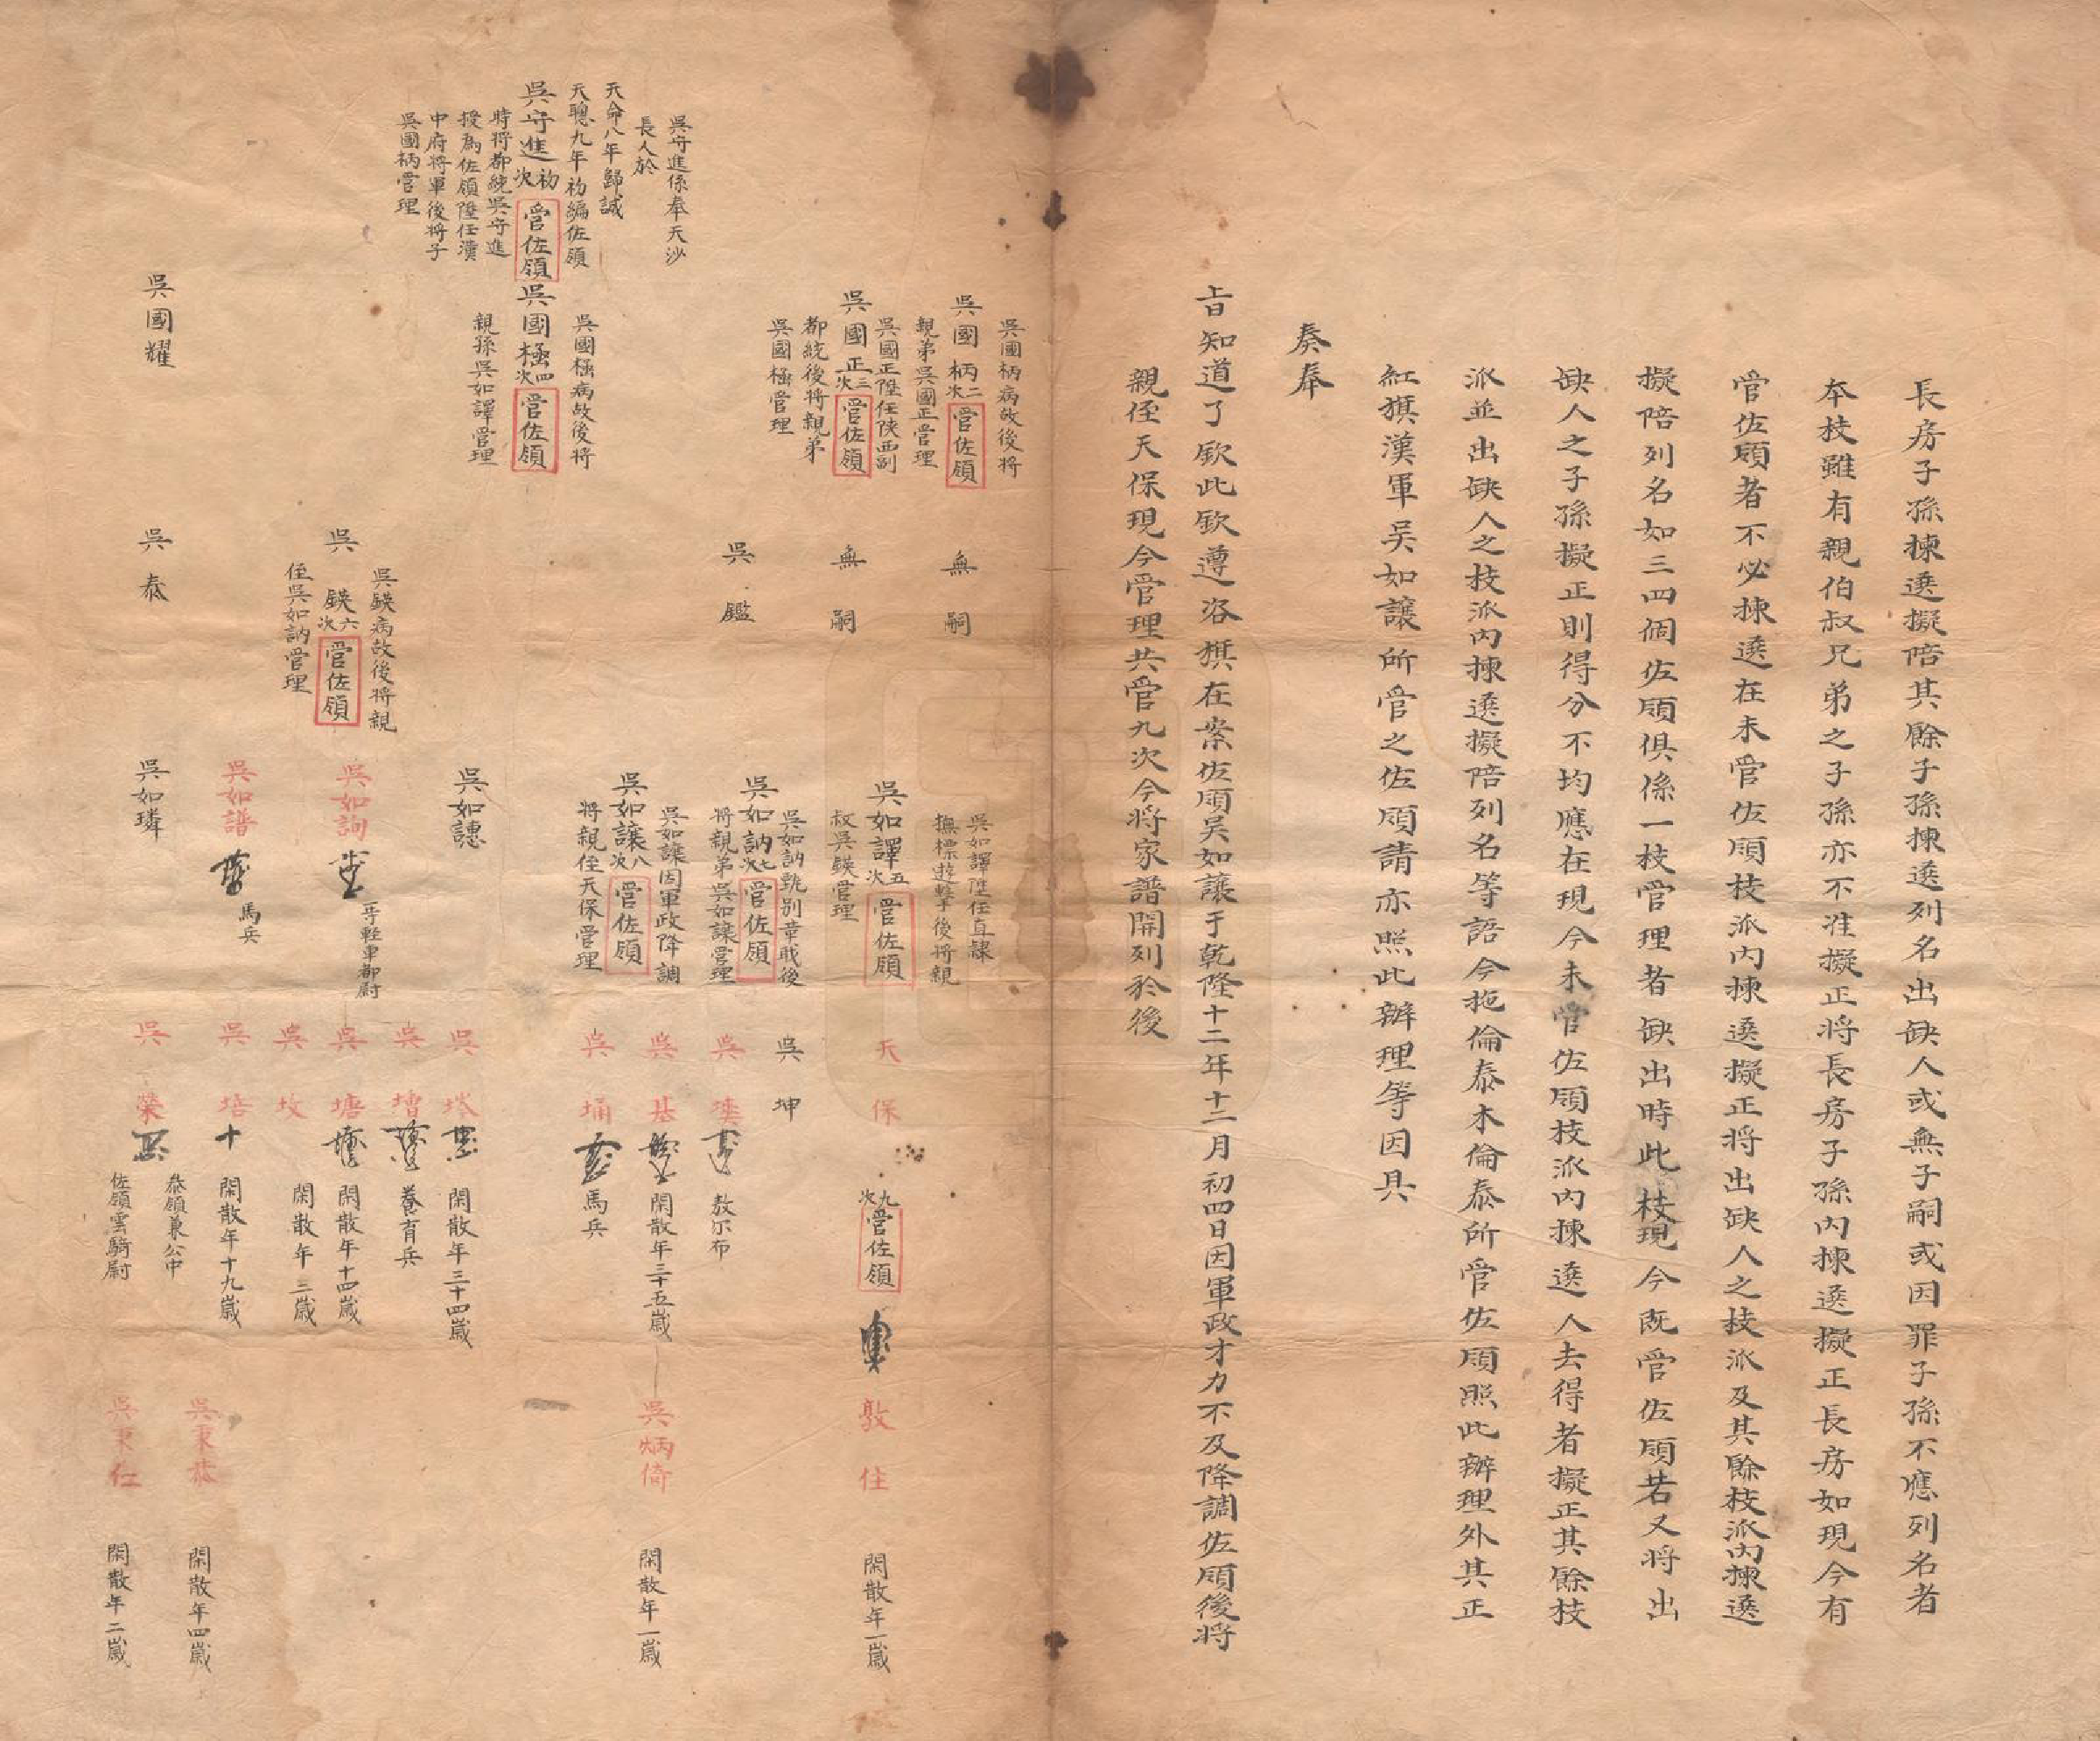 長房子孫揀選擬陪其餘子孫揀選列名出缺人或無子嗣或因罪子孫不應列名者
本枝雖有親伯叔兄弟之子孫亦不准擬正將長房子孫內揀選擬正長房如現今有
管佐領者不必揀選在未管佐領枝派內揀選擬正將出缺人之枝派及其餘枝派內揀選
擬陪列名如三四個佐領俱係一枝管理者缺出時此枝現今既管佐領若又將出
缺人之子孫擬正則得分不均應在現今未管佐領枝派內揀選人去得者擬正其餘枝
派並出缺人之枝派內揀選擬陪列名等語今拖倫泰木倫泰所管佐領照此辦理外其正
紅旗漢軍吳如讓所管之佐領請亦照此辦理等因具
奏奉
旨知道了欽此欽遵咨旗在案佐領吳如讓于乾隆十二年十二月初四日因軍政才力不及降調佐領後將
親侄天保現今管理共管九次今將家譜開列於後
吳守進係奉天沙
長人於
天命八年歸誠
天聰九年初編佐領
吳守進初次管佐領
時將都統吳守進
授為佐領陞任漢
中府將軍後將子
吳國柄管理
吳國柄病故後將
吳國柄二次管佐領
親弟吳國正管理
吳國正陞任陝西副
吳國正三次管佐領
都統後將親弟
吳國極管理
吳國極病故後將
吳國極四次管佐領
親孫吳如譯管理
吳國耀
無嗣
無嗣
吳鑑
吳鍈病故後將親
吳鍈六次管佐領
侄吳如訥管理
吳泰
吳如譯陞任直隸
撫標遊擊後將親
吳如譯五次管佐領
叔吳鍈管理
吳如訥七次管佐領
將親弟吳如讓管理
吳如讓因軍政降調
吳如讓八次管佐領
將親侄天保管理
吳如譓
吳如詢
一等輕車都尉
吳如譜
馬兵
吳如璘
天保
九次管佐領
吳坤
吳
敖尔布
吳基
閑散年三十五歲
吳埇
馬兵
吳
閑散年三十四歲
吳增
養育兵
吳塘
閑散年十四歲
吳坟
閑散年三歲
吳培
閑散年十九歲
吳榮
叅領兼公中
佐領雲騎尉
敦住
閑散年一歲
吳炳倚
閑散年一歲
吳秉恭
閑散年四歲
吳秉仁
閑散年二歲